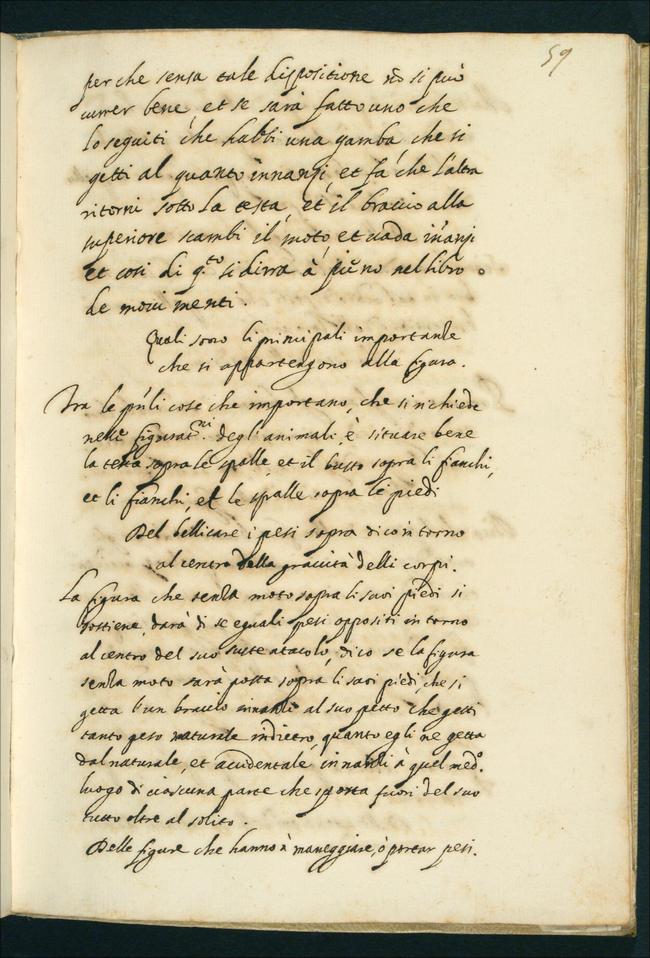 59
perche senza tale dispositione nõ si può
currer bene, et se sarà fatto uno che
lo seguiti che habbi una gamba, che si
getti al quanto innanzi, et fa, che l'altra
ritorni sotto la testa, et il braccio alla
superiore scambi il moto, et uada in'anzi
et cosi di q.to si dirra à pieno nel libro
de mouimenti.
Quali sono li principali importanze
che si appartengono alla figura.
Tra le p'nli cose che importano, che si richiede
nelle figurat.ni degli animali, è situare bene
la testa sopra le spalle, et il busto sopra li fianchi,
et li fianchi, et le spalle sopra le piedi
Del bellicare i pesi sopra dicointorno
al centro della grauità delli corpi.
La figura che senza moto sopra li suoi piedi si
sostiene, darà di se eguali pesi oppositi intorno
al centro del suo sustentacolo, dico se la figura
senza moto sarà posta sopra li suoi piedi, che si
getta l'un braccio innanzi al suo petto che getti
tanto peso naturale indietro, quanto egli ne getta
dal naturale, et accidentale innanzi à quel med.o
luogo di ciascuna parte che sporta fuori del suo
tutto oltre al solito.
Delle figure che hanno à maneggiare, ò portar pesi.